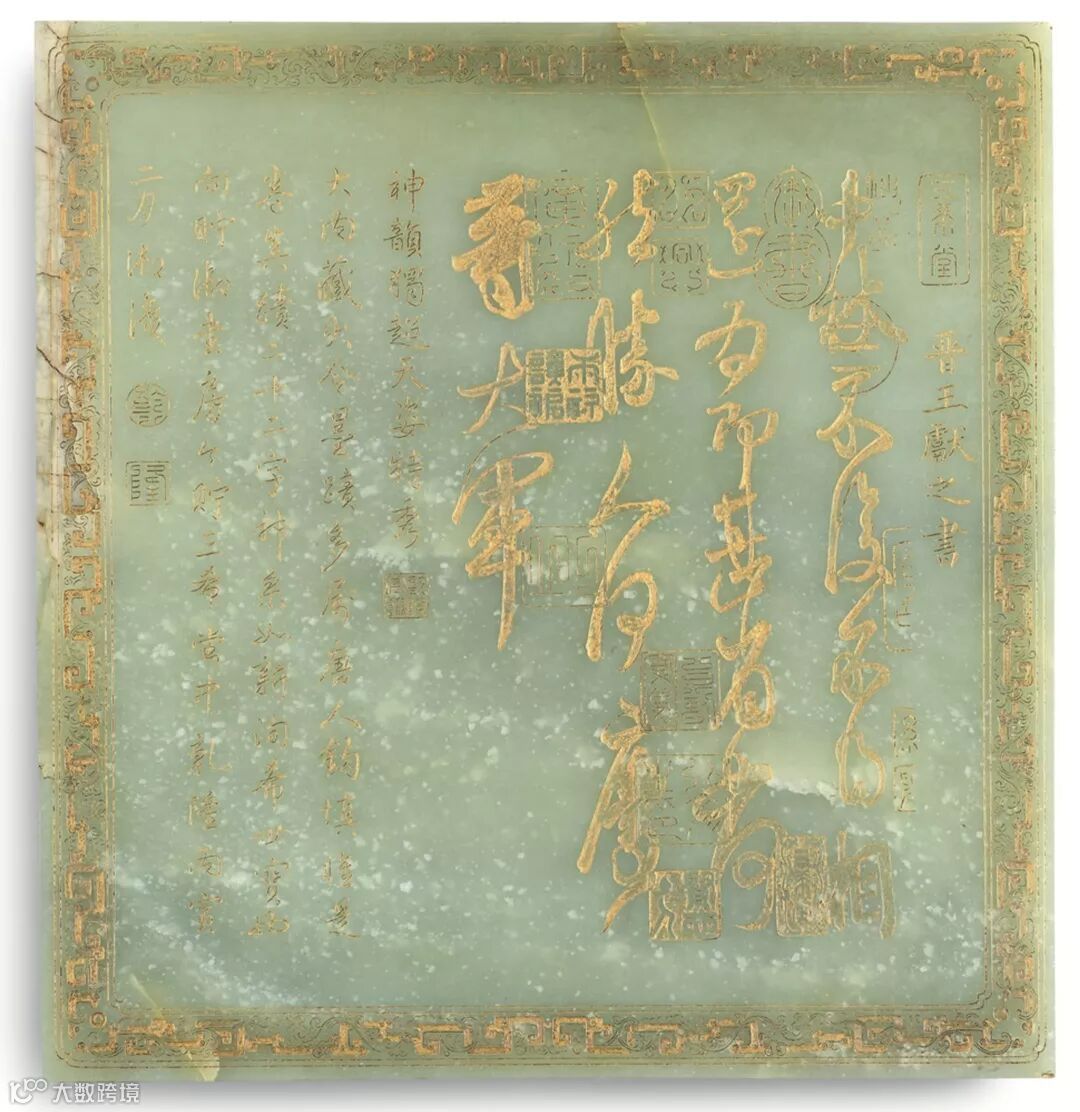 三希堂
晉王獻之書
中秋不復不得相
還為即甚省如何
然勝人何慶
等大軍
神韻獨超天姿特秀
大內藏大令墨蹟多屬唐人鉤填惟是
卷真蹟二十二字神采如新洵希世寶也
向貯御書房今貯三希堂中乾隆丙寅
二月御識
大数跨境